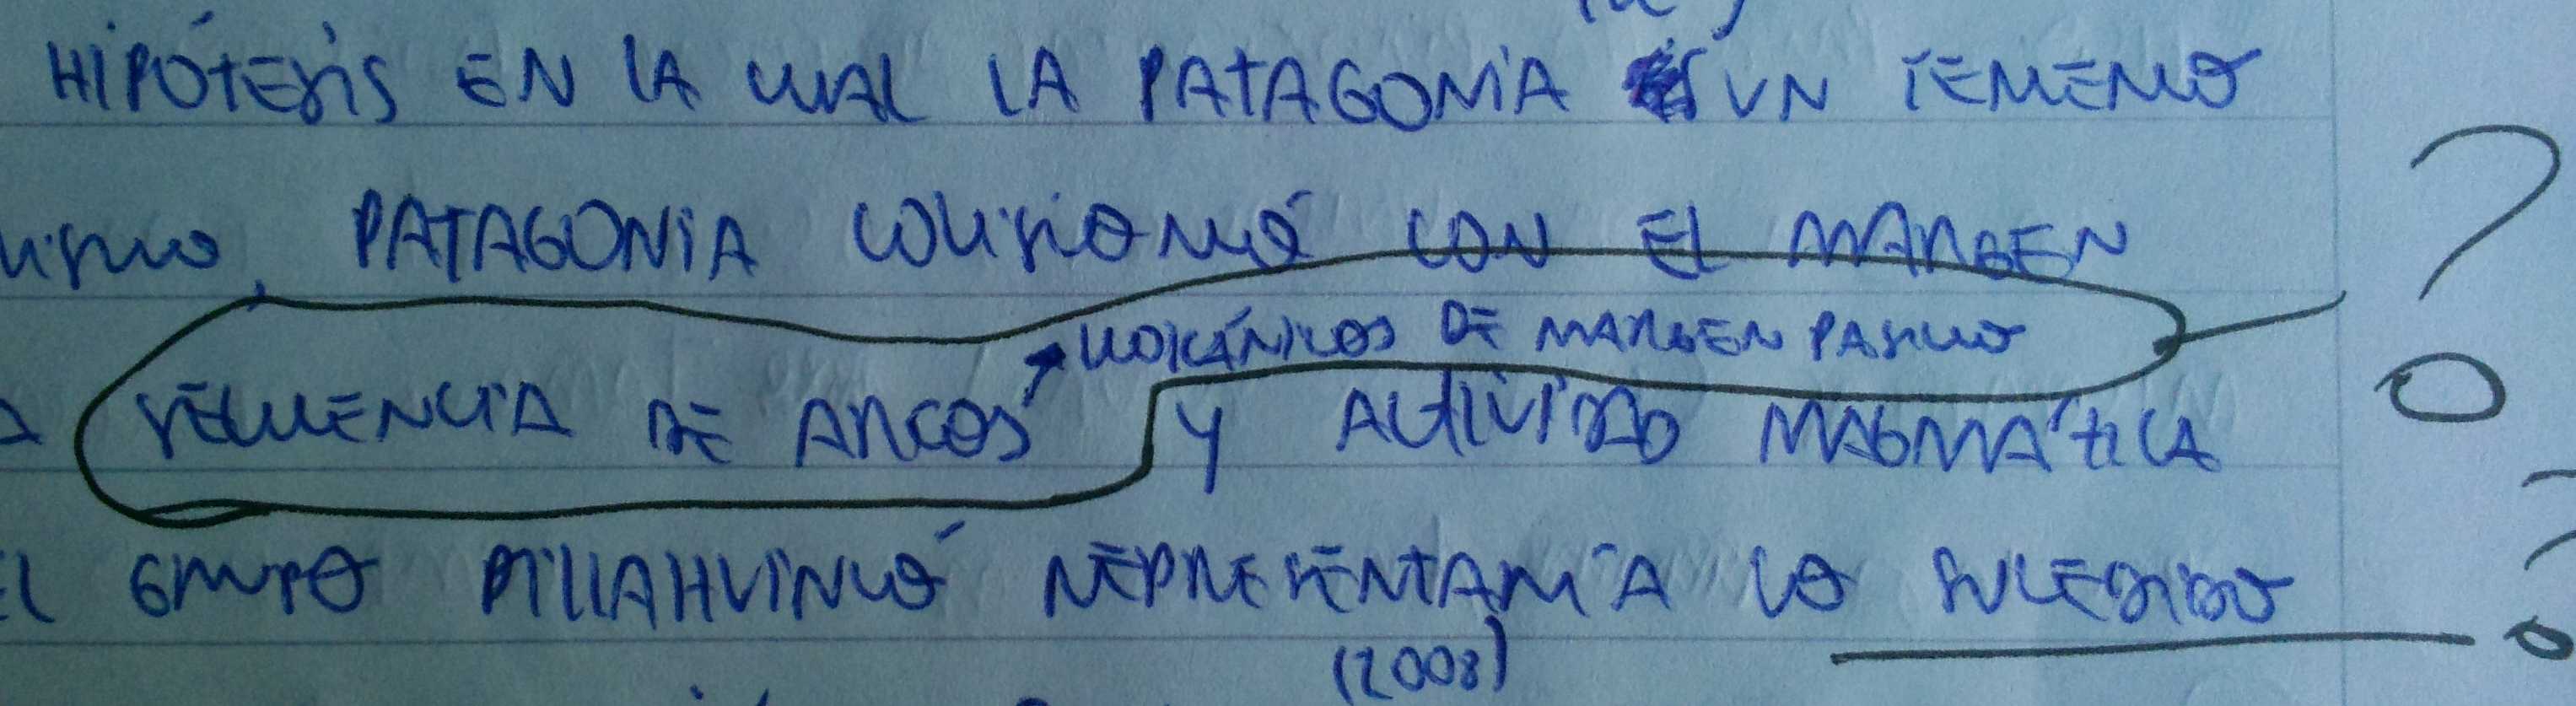 HIPÓTESIS EN LA CUAL LA PATAGONIA ES UN TERRENO
PATAGONIA COLISIONÓ CON EL MARGEN
VOLCÁNICOS DE MARGEN PASIVO
SECUENCIA DE ARCOS Y ACTIVIDAD MAGMÁTICA
EL GRUPO PILLAHUINCÓ REPRESENTARÍA LO SUCEDIDO
(2008)